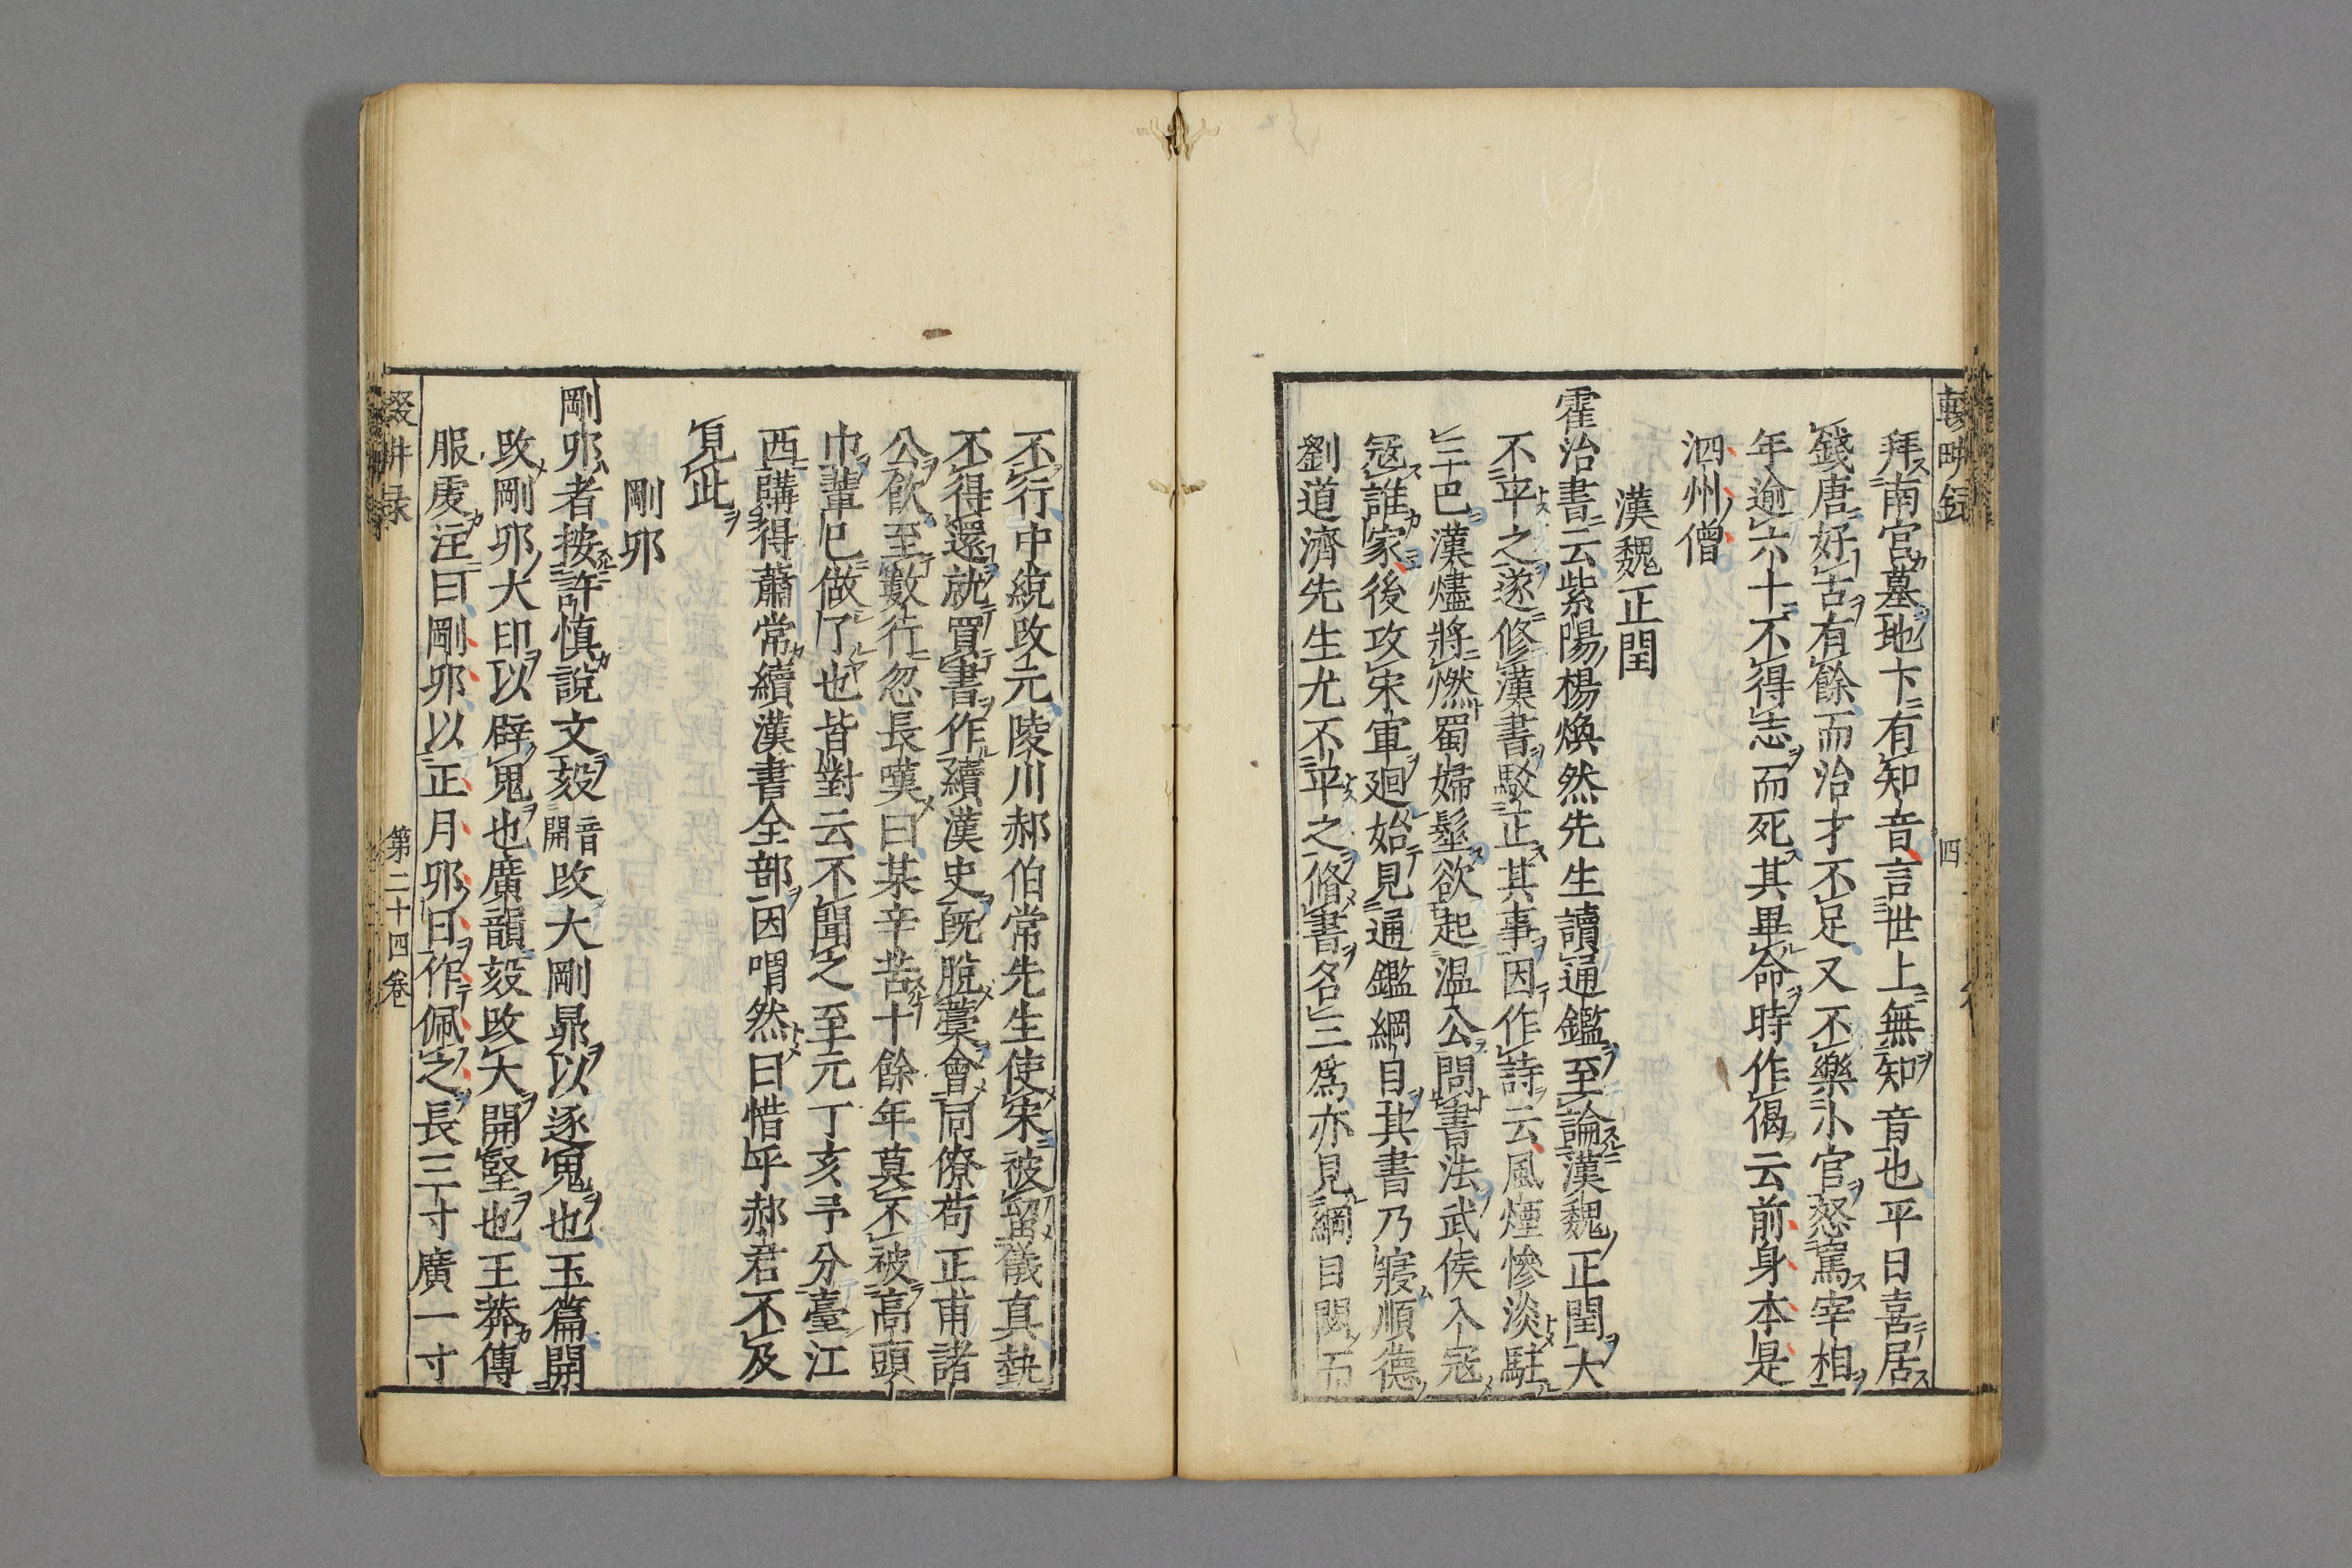 拜南宮墓地卞有知音言世上無知音也平日喜居
錢唐好古有餘而治才不足又不樂小官怒罵宰相
年逾六十不得志而死其畢命時作偈云前身本是
泗州僧
漢魏正閏
霍治書云紫陽楊煥然先生讀通鑑至論漢魏正閏大
不平之遂修漢書駁正其事因作詩云風煙慘淡駐
三巴漢燼將燃蜀婦髽欲起温公問書法武侯入寇
寇誰家後攻宋軍廻始見通鑑綱目其書乃寢順德
劉道濟先生尤不平之脩書名三為亦見綱目
不行中統改元陵川郝伯常先生使宋被留儀真執
不得還就買書作續漢史既脫藁會同僚苟正甫諸
公飲至數行忽長嘆曰某辛苦十餘年莫不被高頭
巾輩已做了也皆對云不聞之至元丁亥予分臺江
西購得蕭常續漢書全部因喟然曰惜乎郝君不及
見此
剛卯
剛卯者按許慎說文㱾音開改大剛卯以逐鬼也玉篇開
改剛卯大印以辟鬼也廣韻㱾改大開堅也王莽傳
服虔注曰剛卯以正月卯日作佩之長三寸廣一寸
輟畊録
四
輟耕录
第二十四卷